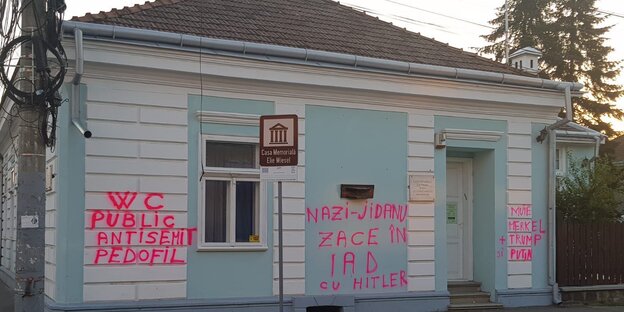 Casa Memorială
Elie Wiesel
WC
PUBLIC
ANTISEMIT
PEDOFIL
NAZI-JIDANU
ZACE ÎN
IAD
CU HITLER
MUIE
MERKEL
+ TRUMP
ȘI PUTIN